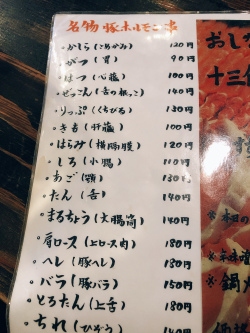 名物豚ホルモン串
かしら(こめかみ) 120円
がつ(胃) 90円
はつ(心臓) 100円
(舌の根っこ) 140円
りっぷ(くちびる) 130円
きも(肝臓) 100円
はらみ(横隔膜) 120円
しろ(小腸) 110円
あご(顎) 130円
たん(舌) 140円
まるちょう(大腸筒) 140円
肩ロース(上ロース肉) 180円
ヘレ(豚ヘレ) 180円
バラ(豚バラ) 150円
とろたん(上舌) 180円
ちれ(ひぞう) 140円
おしな
十三
※本日の
※
※